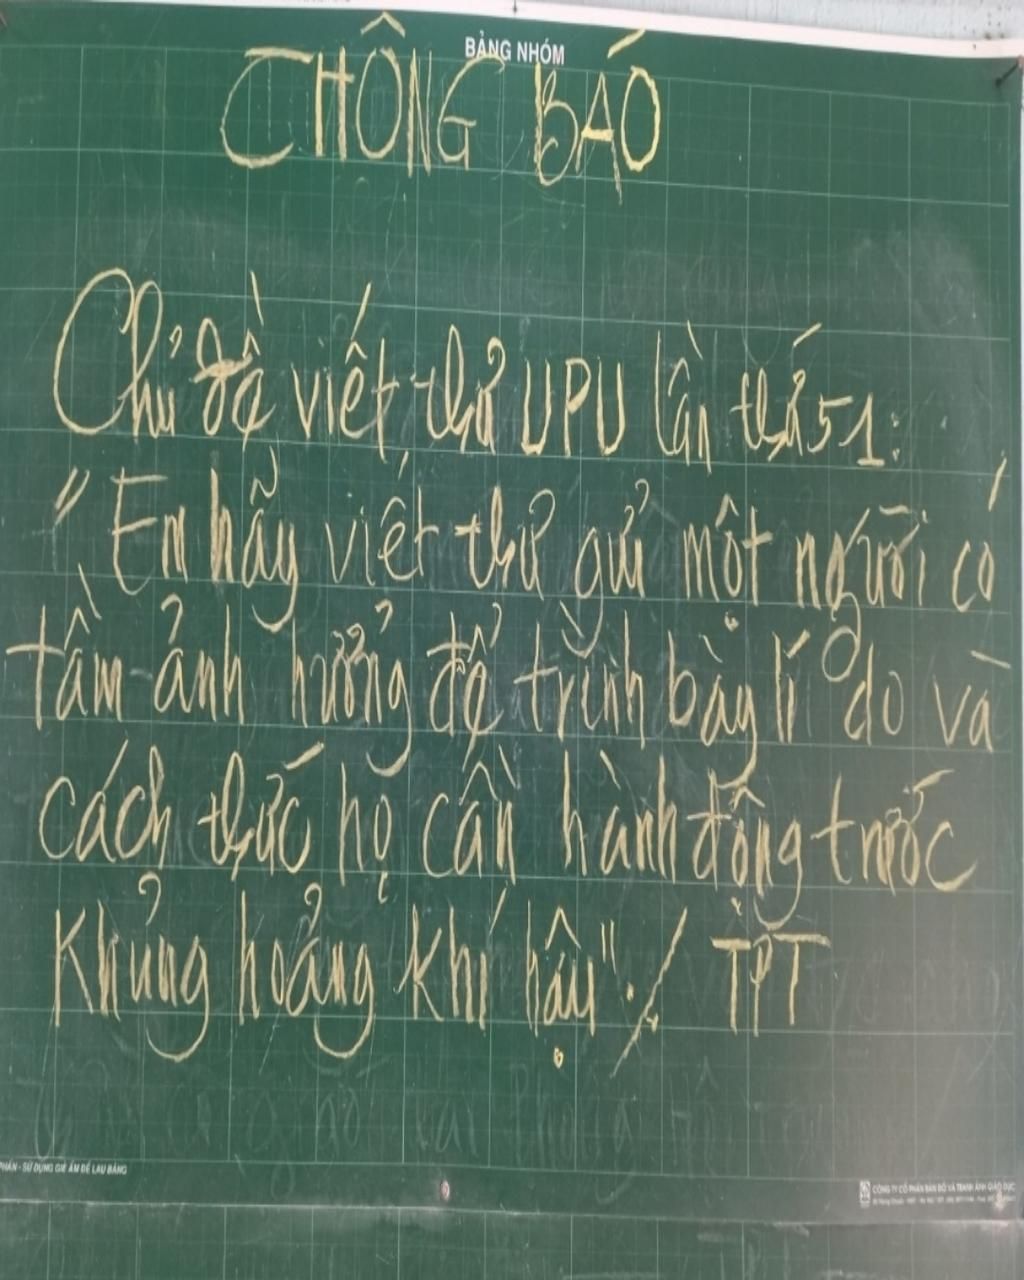 BẢNG NHÓM
THÔNG BÁO
Chủ đề viết thư UPU lần thứ 51:
"Em hãy viết thư gửi một người có
tầm ảnh hưởng để trình bày lí do và
cách thức họ cần hành động trước
khủng hoảng khí hậu"./ TPT
PHẤN - SỬ DỤNG GIẺ ẨM ĐỂ LAU BẢNG
CÔNG TY CỔ PHẦN BẢN ĐỒ VÀ TRANH ẢNH GIÁO DỤC